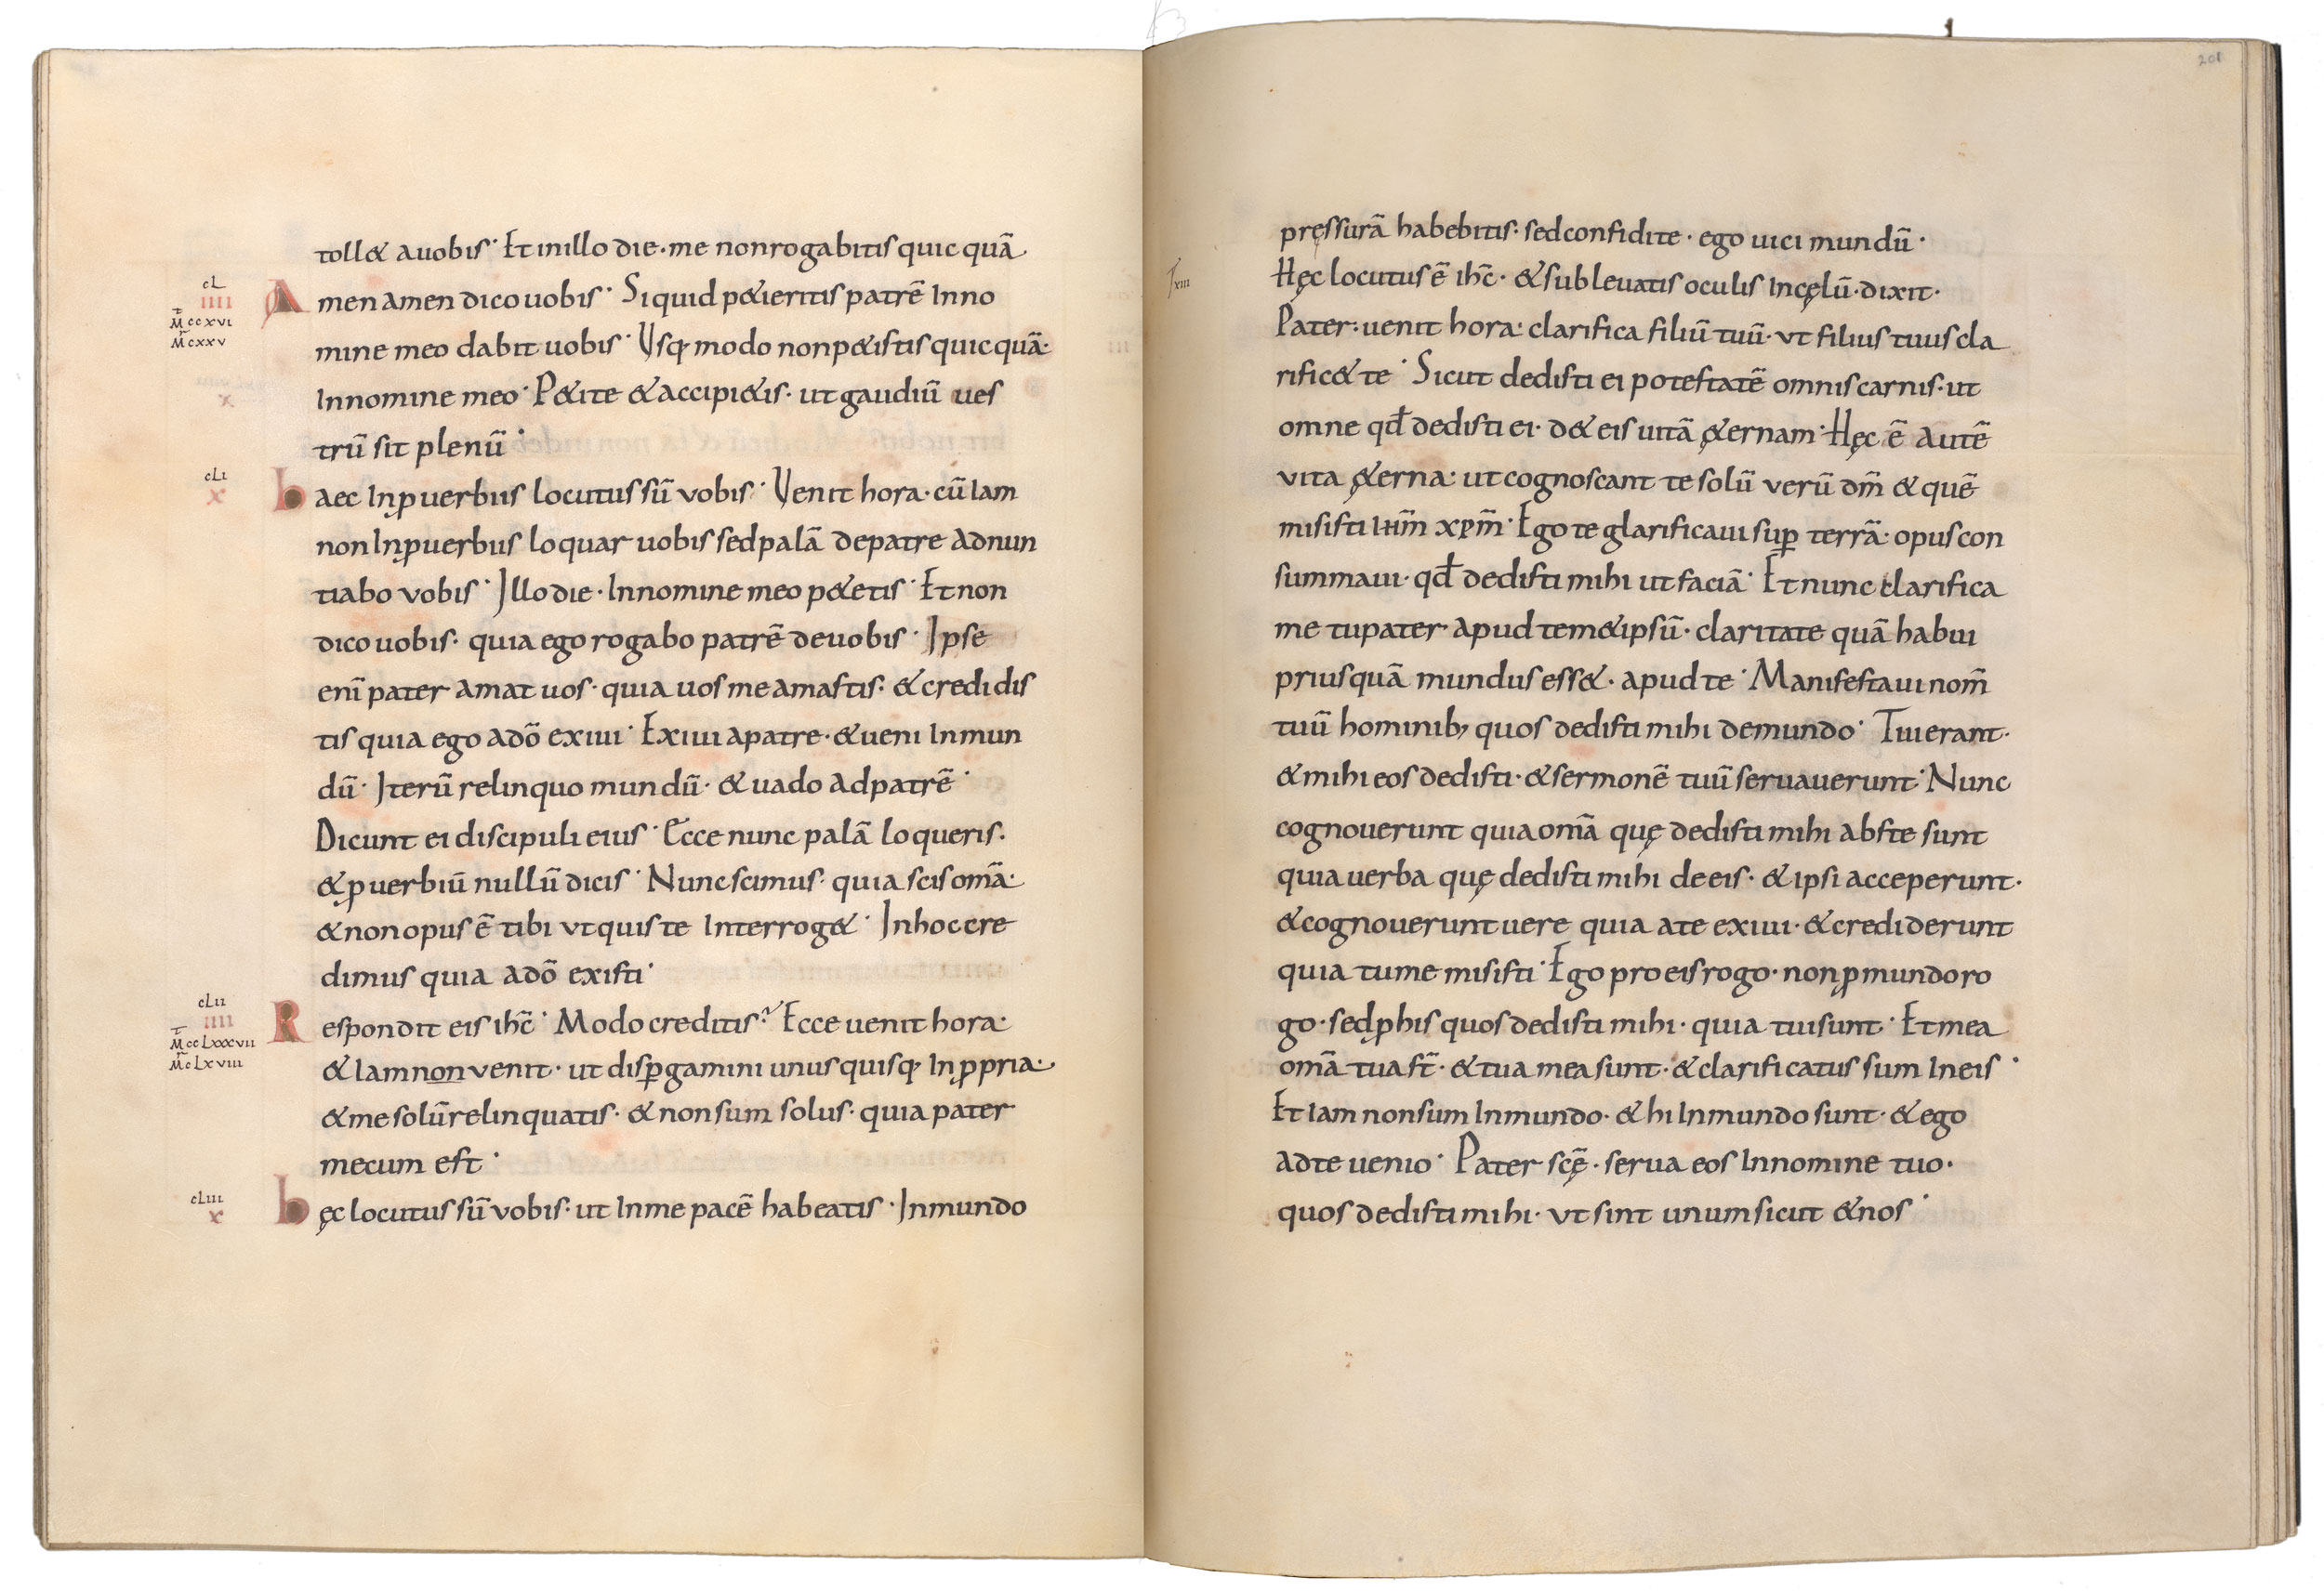 toll& auobis· Et inillo die·me nonrogabitis quicquā
cL
IIII
Amen amen dico uobis· Siquid p&ieritis patrē Inno
M̄ccxvi
M̄cxxv
mine meo dabit uobis· Vsq; modo nonp&istis quicquā·
Innomine meo· P&ite &accipi&is· ut gaudiū ues
x
trū sit plenū·
cLi
x
haec Inꝓuerbiis locutus sū vobis· Venit hora·cū Iam
non Inꝓuerbiis loquar uobis sedpalā depatre Adnun
tiabo vobis· Illo die· Innomine meo p&etis· Et non
dico uobis· quia ego rogabo patrē deuobis· Ipse
enī pater amat uos· quia uos me amastis· &credidis
tis quia ego adō exiui· Exiui apatre·&ueni Inmun
dū· Iterū relinquo mundū· &uado adpatrē·
Dicunt ei discipuli eius· Ecce nunc palā loqueris·
&ꝓuerbiū nullū dicis· Nunc scimus· quia scis omā·
&nonopus ē tibi vt quis te Interrog&· Inhoc cre
dimus quia adō existi·
cLii
IIII
Respondit eis ihc̄· Modo creditis? Ecce uenit hora·
M̄ccLxxxvii
M̄cLxviii
&Iamnonvenit· ut disꝑgamini unusquisq; Inꝓpria·
&me solūrelinquatis· &nonsum solus· quia pater
mecum est·
cLiii
x
hęc locutus sū vobis· ut Inme pacē habeatis· Inmundo
201
pręssurā habebitis· sedconfidite· ego uici mundū·
xiii
Hęc locutus ē ihc̄· &subleuatis oculis Incęlū·dixit·
Pater: uenit hora: clarifica filiū tuū· vt filius tuus cla
rific& te· Sicut dedisti ei potestatē omnis carnis· ut
omne qđ dedisti ei· d& eis uitā &ernam· Hęc ē autē
vita &erna: ut cognoscant te solū verū dm̄ & quē
misisti ihm̄ xpm̄· Ego te glarificaui suꝑ terrā· opus con
summaui· qđ dedisti mihi ut faciā· Et nunc clarifica
me tupater apud tem&ipsū· claritate quā habui
priusquā mundus ess&· apud te· Manifestaui nom̄
tuū hominib; quos dedisti mihi demundo· Tui erant·
&mihi eos dedisti· &sermonē tuū seruauerunt· Nunc
cognouerunt quia omā quę dedisti mihi abste sunt
quia uerba quę dedisti mihi de eis· &ipsi acceperunt·
&cognouerunt uere quia ate exiui· &crediderunt
quia tume misisti· Ego pro eis rogo· nonꝓmundo ro
go· sedꝓhis quos dedisti mihi· quia tui sunt· Et mea
omā tua st̄· &tua mea sunt· &clarificatus sum Ineis·
Et Iam nonsum Inmundo· &hi Inmundo sunt· &ego
adte uenio· Pater scę̄· serua eos Innomine tuo·
quos dedisti mihi· vt sint unum sicut &nos·